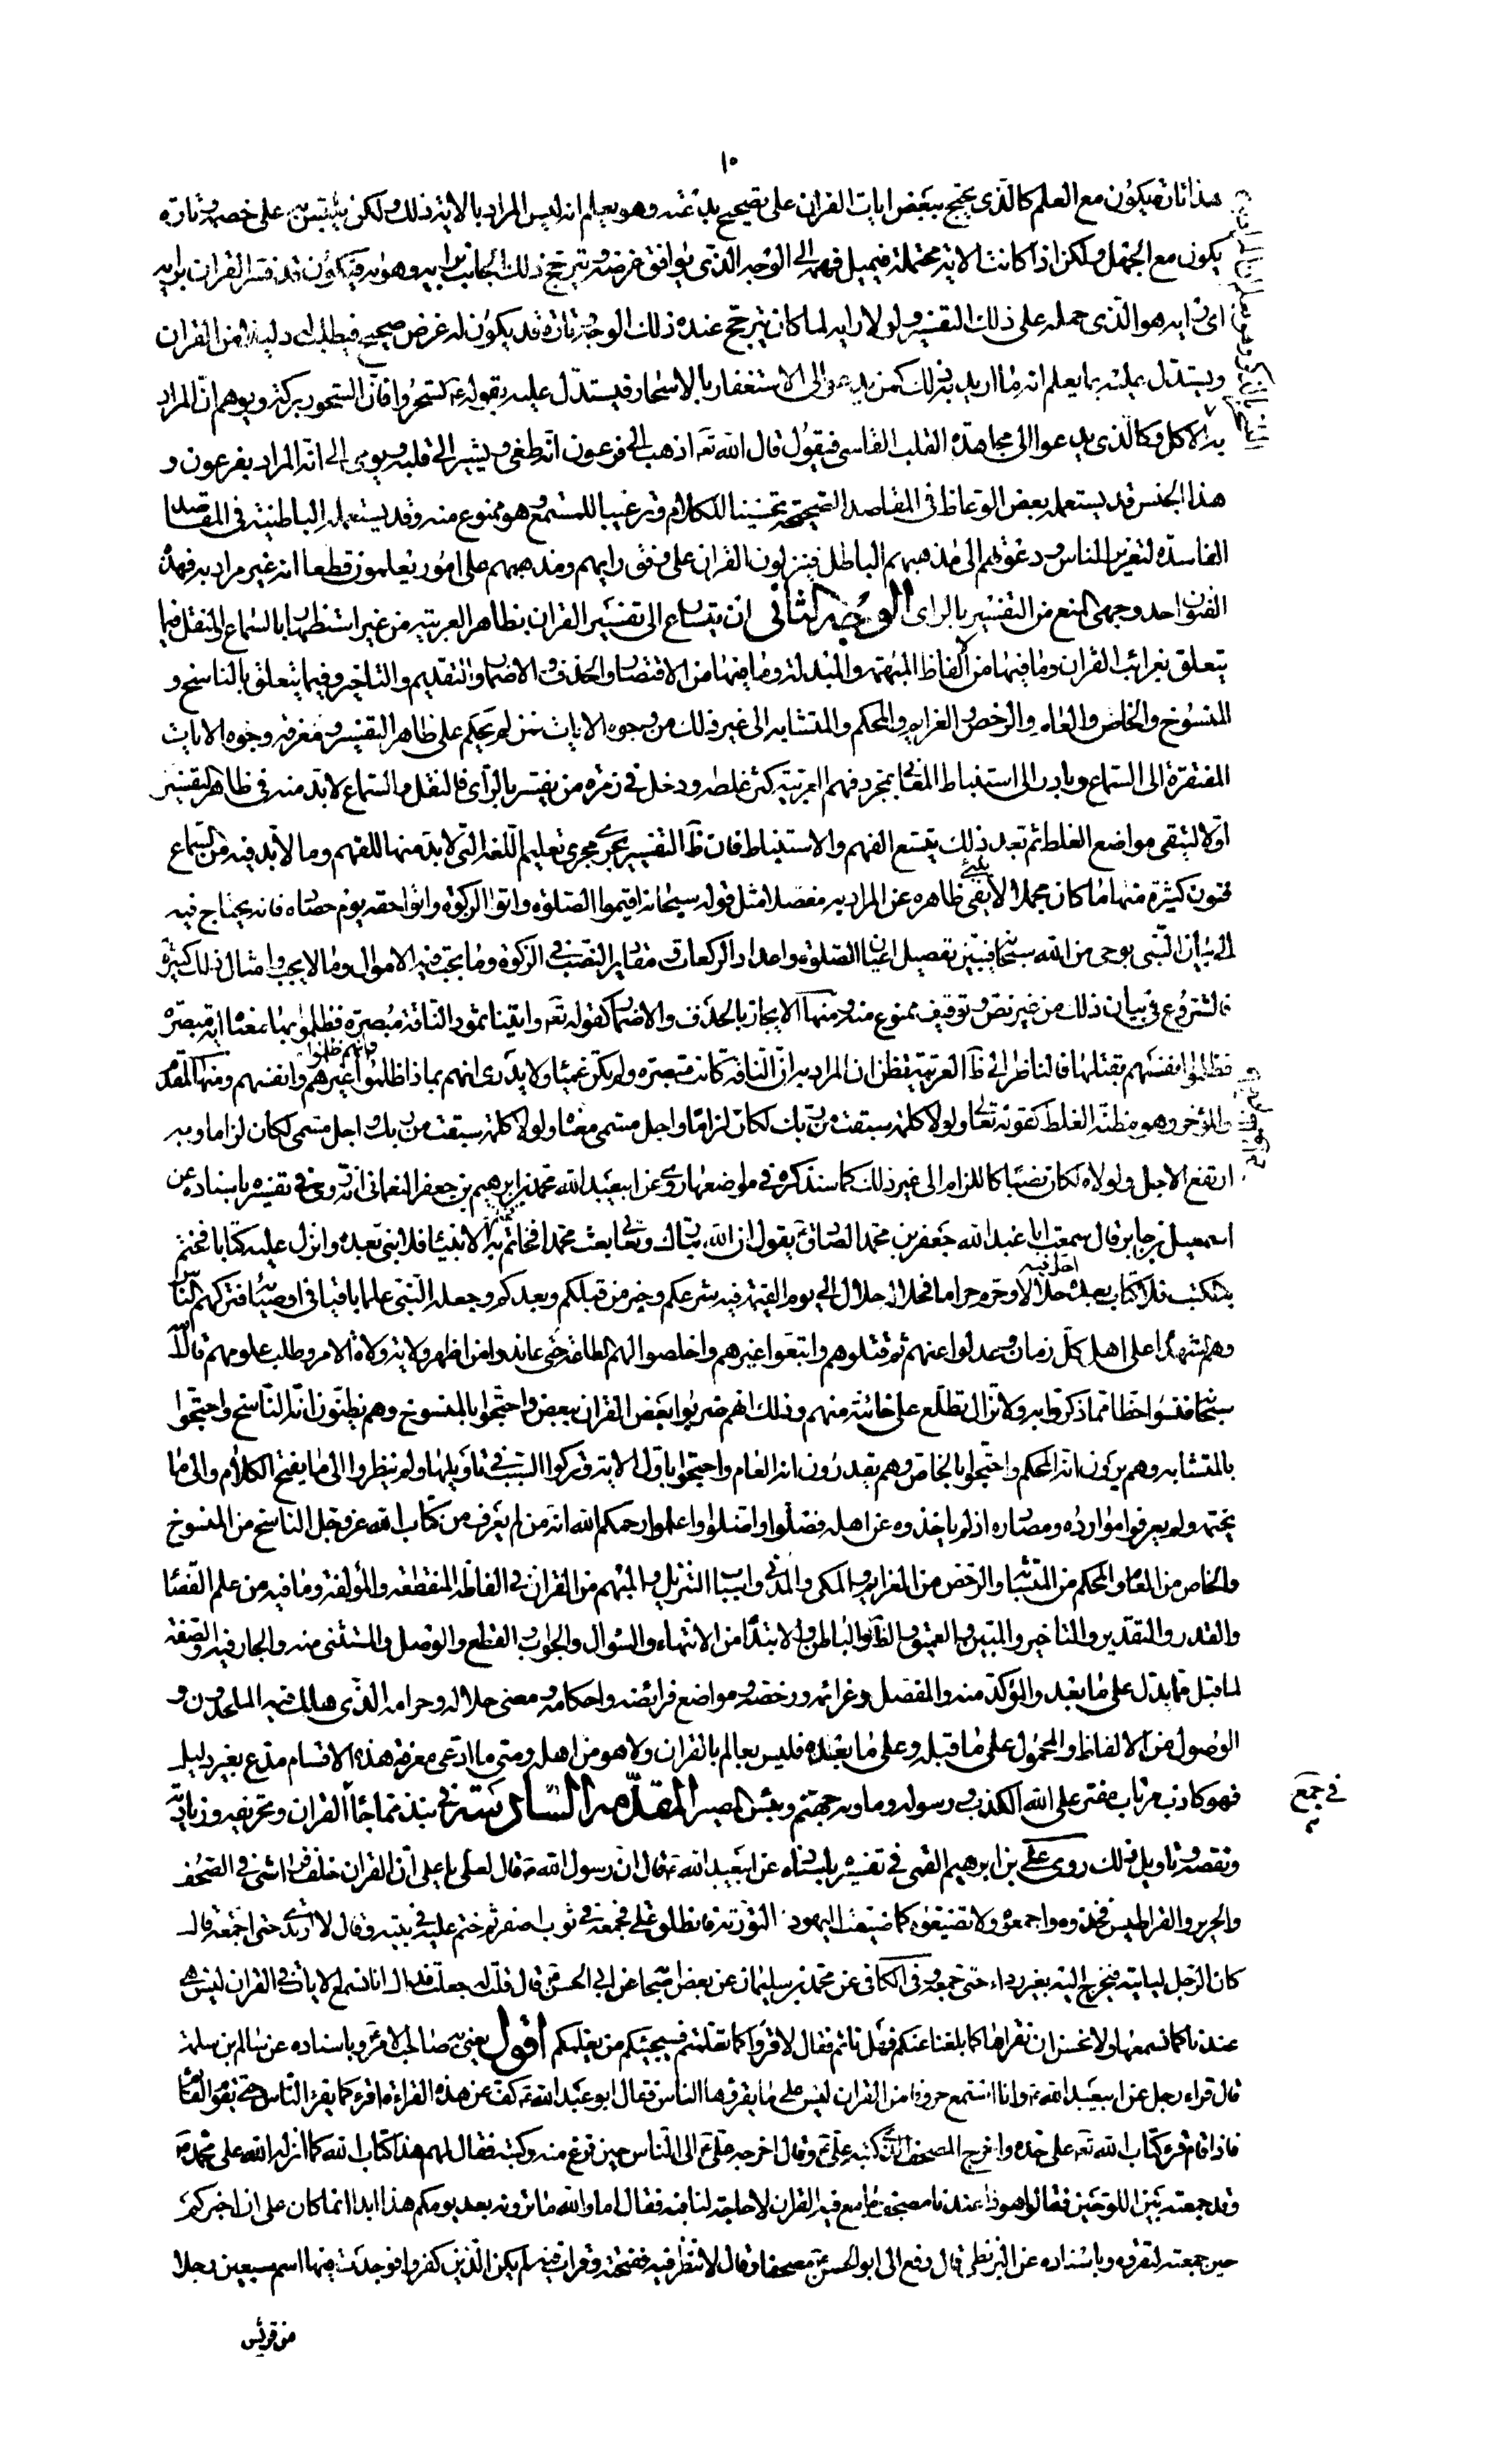 ١٠
هذا تارة يكون مع العلم كالذى يحتج ببعض ايات القران على تصحيح بدعته وهو يعلم انه ليس المراد بالاية ذلك ولكن يلبس به على خصمه وتارة
يكون مع الجهل ولكن اذا كانت الاية محتملة فيميل فهمه الى الوجه الذى يوافق غرضه ويترجح ذلك الجانب برايه وهواه فيكون قد فسر القران برايه
اى رايه هو الذى حمله على ذلك التفسير ولولا رايه لما كان يترجح عنده ذلك الوجه وتارة قد يكون له غرض صحيح فيطلب له دليلا من القران
ويستدل عليه بما يعلم انه ما اريد به ذلك كمن يدعو الى الاستغفار بالاسحار فيستدل عليه بقوله ع تسحروا فان السحور بركة ويوهم ان المراد
به الاكل وكالذى يدعوا الى مجاهدة القلب القاسى فيقول قال الله تعه اذهب الى فرعون انه طغى ويشير الى قلبه ويومى الى انه المراد بفرعون و
هذا الجنس قد يستعمله بعض الوعاظ فى المقاصد الصحيحة تحسينا للكلام وترغيبا للمستمع وهو ممنوع منه وقد يستعمله الباطنية فى المقاصد
الفاسدة لتغرير الناس ودعوتهم الى مذهبهم الباطل فينزلون القران على وفق رايهم ومذهبهم على امور يعلمون قطعا انه غير مراد به فهذه
الفنون احد وجهى المنع من التفسير بالراى الوجه الثانى ان يتسارع الى تفسير القران بظاهر العربية من غير استظهار بالسماع والنقل فيما
يتعلق بغرائب القران وما فيها من الفاظ المبهمة والمبدلة وما فيها من الاقتصار والحذف والاضمار والتقديم والتاخير وفيما يتعلق بالناسخ و
المنسوخ والخاص والعام والرخص والعزايم والمحكم والمتشابه الى غير ذلك من وجوه الايات فمن لم يحكم على ظاهر التفسير ومعرفة وجوه الايات
المفتقرة الى السماع وبادر الى استنباط المعانى بمجرد فهم العربية كثر غلطه ودخل فى زمرة من يفسر بالراى فالنقل والسماع لابد منه فى ظاهر التفسير
اولا ليتقى مواضع الغلط ثم بعد ذلك يتسع الفهم والاستنباط فان ظ التفسير يجرى مجرى تعليم اللغة التى لابد منها للفهم وما لابد فيه من السماع
فنون كثيرة منها ما كان مجملا لا ينبئ ظاهره عن المراد به مفصلا مثل قوله سبحانه اقيموا الصلوة واتوا الزكوة واتوا حقه يوم حصاده فانه يحتاج فيه
الى بيان النبى بوحى من الله سبحانه فيبين تفصيل اعيان الصلوة واعداد الركعات ومقادير النصب فى الزكوة وما يجب فيه الاموال وما لا يجب وامثال ذلك كثيرة
فالشروع فى بيان ذلك من غير نص وتوقيف ممنوع منه ومنها الايجاز بالحذف والاضمار كقوله تعه واتينا ثمود الناقة مبصرة فظلموا بها معناه اية مبصرة
فظلموا انفسهم بقتلها فالناظر الى ظ العربية يظن ان المراد به ان الناقة كانت مبصرة ولم تكن عمياء ولا يدرى انهم بماذا ظلموا وانهم ظلموا غيرهم او انفسهم ومنها المقدم
والمؤخر وهو مظنة الغلط كقوله تعالى ولولا كلمة سبقت من ربك لكان لزاما واجل مسمى معناه ولولا كلمة سبقت من ربك واجل مسمى لكان لزاما وبه
ارتفع الاجل ولولاه لكان نصبا كاللزام الى غير ذلك كما سنذكره فى مواضعها روى عن ابيعبد الله محمد بن ابرهيم بن جعفر النعمانى انه روى فى تفسيره باسناده عن
اسمعيل بن جابر قال سمعت ابا عبد الله جعفر بن محمد الصادق ع يقول ان الله تبارك وتعالى بعث محمدا فختم به الانبياء فلا نبى بعده وانزل عليه كتابا فختم
به الكتب فلا كتاب بعده احل فيه حلالا وحرم حراما فحلاله حلال الى يوم القيمة فيه شرعكم وخبر من قبلكم وبعدكم وجعله النبى علما باقيا فى اوصيائه فتركهم الناس
وهم الشهداء على اهل كل زمان وعدلوا عنهم ثم قتلوهم واتبعوا غيرهم واخلصوا لهم الطاعة حتى عاندوا من اظهر ولاية ولاة الامر وطلب علومهم قال الله
سبحانه فنسوا حظا مما ذكروا به ولا تزال تطلع على خائنة منهم وذلك انهم ضربوا بعض القران ببعض واحتجوا بالمنسوخ وهم يظنون انه الناسخ واحتجوا
بالمتشابه وهم يرون انه المحكم واحتجوا بالخاص وهم يقدرون انه العام واحتجوا باول الاية وتركوا السبب فى تاويلها ولم ينظروا الى ما يفتح الكلام والى ما
يختمه ولم يعرفوا موارده ومصادره اذ لم ياخذوه عن اهله فضلوا واضلوا واعلموا رحمكم الله انه من لم يعرف من كتاب الله عز وجل الناسخ من المنسوخ
والخاص من العام والمحكم من المتشابه والرخص من العزايم والمكى والمدنى واسباب التنزيل والمبهم من القران فى الفاظه المنقطعة والمؤلفة وما فيه من علم القضاء
والقدر والتقديم والتاخير والمبين والعميق والظاهر والباطن والابتداء من الانتهاء والسؤال والجواب والقطع والوصل والمستثنى منه والجار فيه والصفة
لما قبل مما يدل على ما بعد والمؤكد منه والمفصل وعزائمه ورخصه ومواضع فرائضه واحكامه ومعنى حلاله وحرامه الذى هلك فيه الملحدون و
الوصول من الالفاظ والمحمول على ما قبله وعلى ما بعده فليس بعالم بالقران ولا هو من اهله ومتى ما ادعى معرفة هذه الاقسام مدع بغير دليل
فهو كاذب مرتاب مفتر على الله الكذب ورسوله وماويه جهنم وبئس المصير المقدمة السادسة فى نبذ مما جاء فى جمع القران وتحريفه وزيادته
ونقصه وتاويل ذلك روى على بن ابرهيم القمى فى تفسيره باسناده عن ابيعبد الله ع قال ان رسول الله ص قال لعلى يا على ان القران خلف فراشى فى الصحف
والحرير والقراطيس فخذوه واجمعوه ولا تضيعوه كما ضيعت اليهود التورية فانطلق على فجمعه فى ثوب اصفر ثم ختم عليه فى بيته وقال لا ارتدى حتى اجمعه قال
كان الرجل لياتيه فيخرج اليه بغير رداء حتى جمعه وفى الكافى عن محمد بن سليمان عن بعض اصحابه عن ابى الحسن ع قال قلت له جعلت فداك انا نسمع الايات فى القران ليس هى
عندنا كما نسمعها ولا نحسن ان نقراها كما بلغنا عنكم فهل ناثم فقال لا اقرؤا كما تعلمتم فسيجيئكم من يعلمكم اقول يعنى به صاحب الامر ع وباسناده عن سالم بن سلمة
قال قراء رجل عن ابيعبد الله ع وانا استمع حروفا من القران ليس على ما يقرؤها الناس فقال ابو عبد الله ع كف عن هذه القراءة اقرء كما يقرء الناس حتى يقوم القائم
فاذا قام قرء كتاب الله تعه على حده واخرج المصحف الذى كتبه على ع وقال اخرجه على ع الى الناس حين فرغ منه وكتبه فقال لهم هذا كتاب الله كما انزله الله على محمد ص
وقد جمعته بين اللوحين فقالوا هو ذا عندنا مصحف جامع فيه القران لا حاجة لنا فيه فقال اما والله ما ترونه بعد يومكم هذا ابدا انما كان على ان اخبركم
حين جمعته لتقرؤه وباسناده عن البزنطى قال دفع الى ابو الحسن ع مصحفا وقال لا تنظر فيه ففتحته وقرات فيه لم يكن الذين كفروا فوجدت فيها اسم سبعين رجلا
من قريش
فى جمع